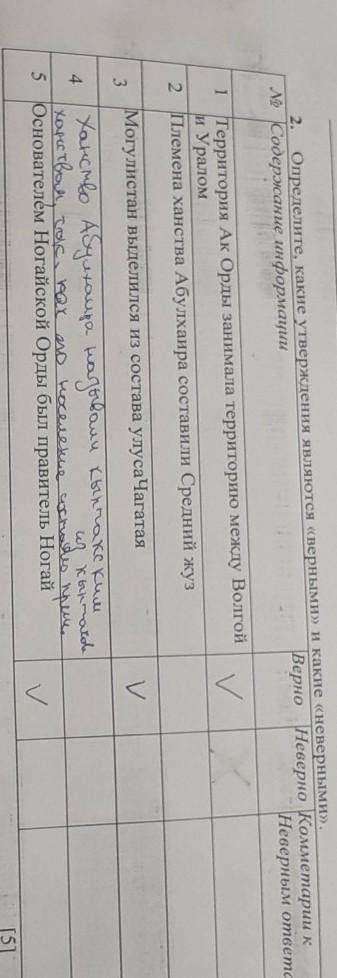 2. Определите, какие утверждения являются «верными» и какие «неверными».
№ Содержание информации Верно Неверно Комментарии к
Неверным ответ
1 Территория Ак Орды занимала территорию между Волгой
и Уралом ✓
2 Племена ханства Абулхаира составили Средний жуз
3 Могулистан выделился из состава улусаЧагатая ✓
4 Ханство Абулхаира называли кыпчакским
ханством, так как его население из кыпчаков
5 Основателем Ногайской Орды был правитель Ногай ✓
[5]